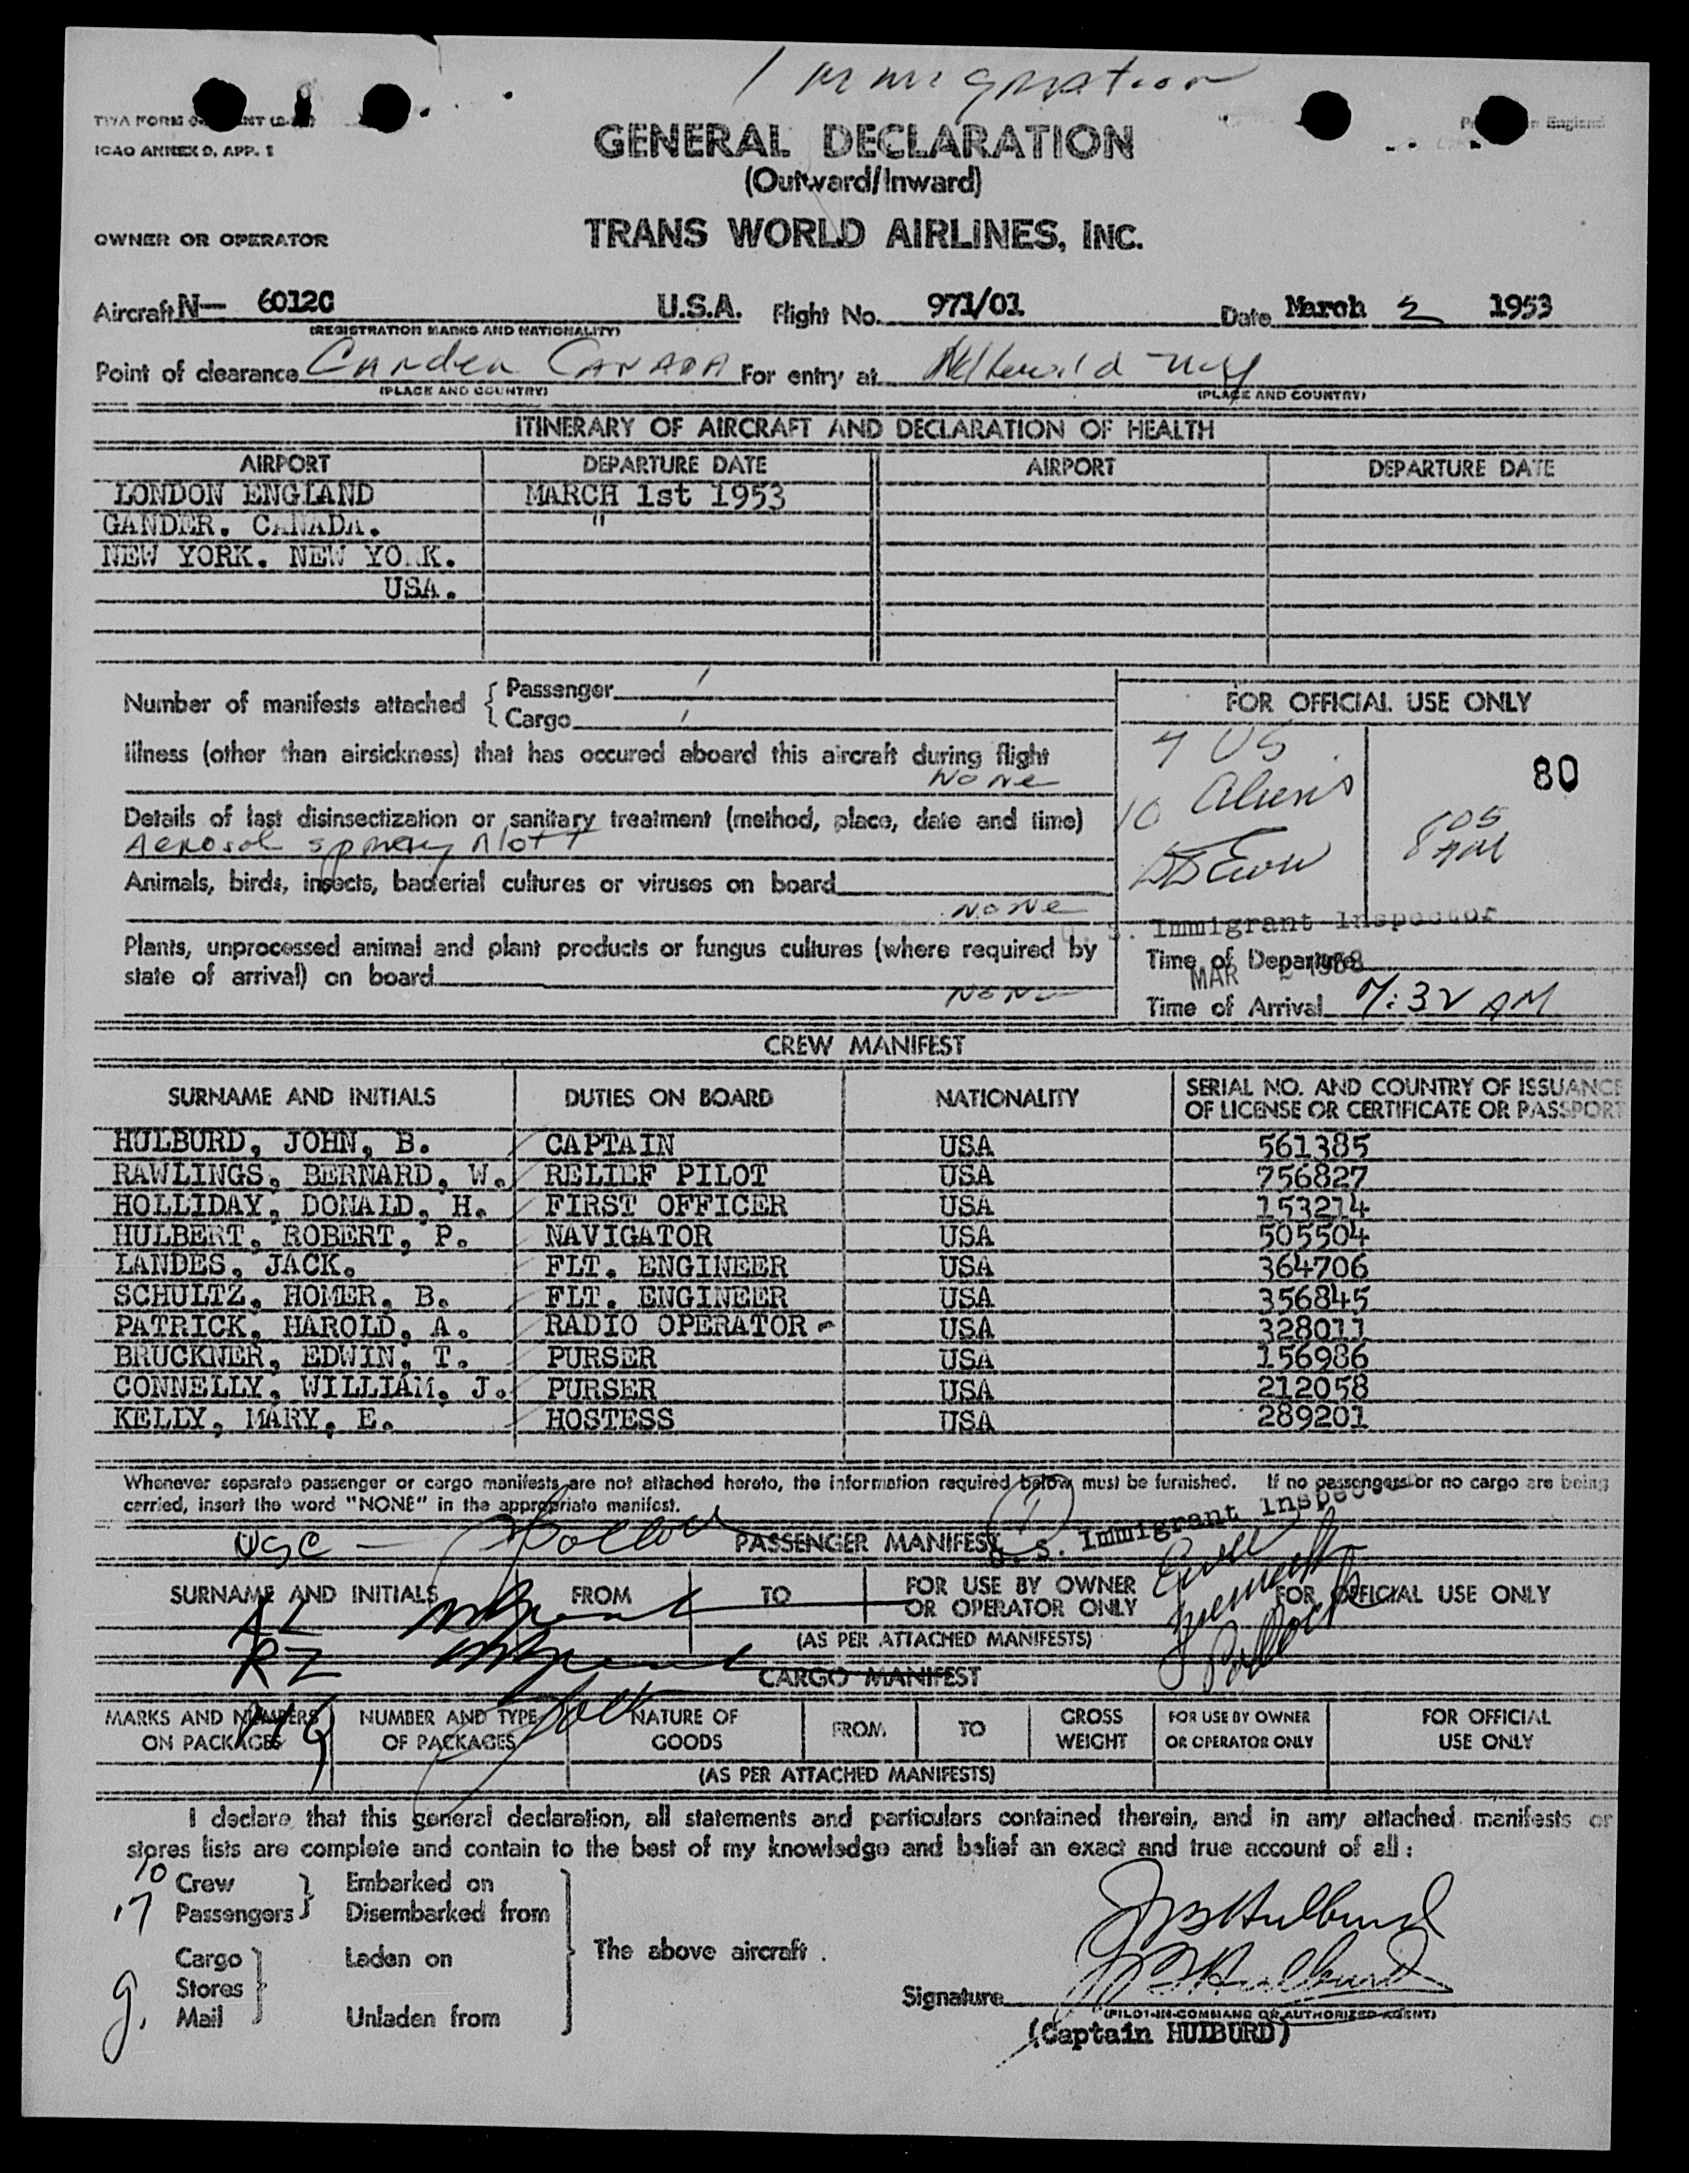 Immigration
TWA FORM
ICAO ANNEX 9, APP. 1
England
GENERAL DECLARATION
(Outward/Inward)
OWNER OR OPERATOR
TRANS WORLD AIRLINES, INC.
Aircraft N— 6012C U.S.A. Flight No. 971/01 Date March 2 1953
(REGISTRATION MARKS AND NATIONALITY)
Point of clearance CANADA For entry at
(PLACE AND COUNTRY) (PLACE AND COUNTRY)
ITINERARY OF AIRCRAFT AND DECLARATION OF HEALTH
AIRPORT DEPARTURE DATE AIRPORT DEPARTURE DATE
LONDON ENGLAND MARCH 1st 1953
GANDER. CANADA. "
NEW YORK. NEW YO K.
USA.
Number of manifests attached { Passenger 1
Cargo 1
FOR OFFICIAL USE ONLY
Illness (other than airsickness) that has occured aboard this aircraft during flight
None
7 US
10 Aliens
80
805
AM
Details of last disinsectization or sanitary treatment (method, place, date and time)
Aerosol spray
Animals, birds, insects, bacterial cultures or viruses on board
None
U. S. Immigrant Inspector
Plants, unprocessed animal and plant products or fungus cultures (where required by
state of arrival) on board
None
Time of Departure
MAR
Time of Arrival 7:32 AM
CREW MANIFEST
SURNAME AND INITIALS DUTIES ON BOARD NATIONALITY SERIAL NO. AND COUNTRY OF ISSUANCE
OF LICENSE OR CERTIFICATE OR PASSPORT
HULBURD, JOHN, B. CAPTAIN USA 561385
RAWLINGS, BERNARD, W. RELIEF PILOT USA 756827
HOLLIDAY, DONALD, H. FIRST OFFICER USA 153214
HULBERT, ROBERT, P. NAVIGATOR USA 505504
LANDES, JACK. FLT. ENGINEER USA 364706
SCHULTZ, HOMER, B. FLT. ENGINEER USA 356845
PATRICK, HAROLD, A. RADIO OPERATOR - USA 328011
BRUCKNER, EDWIN, T. PURSER USA 156986
CONNELLY, WILLIAM, J. PURSER USA 212058
KELLY, MARY, E. HOSTESS USA 289201
Whenever separate passenger or cargo manifests are not attached hereto, the information required below must be furnished. If no passengers or no cargo are being
carried, insert the word "NONE" in the appropriate manifest.
U. S. Immigrant Inspector
USC — PASSENGER MANIFEST
SURNAME AND INITIALS FROM TO FOR USE BY OWNER
OR OPERATOR ONLY FOR OFFICIAL USE ONLY
AL
(AS PER ATTACHED MANIFESTS)
RZ
CARGO MANIFEST
MARKS AND NUMBERS
ON PACKAGES NUMBER AND TYPE
OF PACKAGES NATURE OF
GOODS FROM TO GROSS
WEIGHT FOR USE BY OWNER
OR OPERATOR ONLY FOR OFFICIAL
USE ONLY
(AS PER ATTACHED MANIFESTS)
I declare that this general declaration, all statements and particulars contained therein, and in any attached manifests or
stores lists are complete and contain to the best of my knowledge and belief an exact and true account of all :
10 Crew Embarked on
17 Passengers Disembarked from
Cargo Laden on
Stores The above aircraft .
Mail Unladen from
JB Hulburd
JB Hulburd
Signature
(PILOT-IN-COMMAND OR AUTHORIZED AGENT)
(Captain HULBURD)